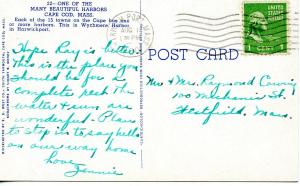 22—ONE OF THE
MANY BEAUTIFUL HARBORS
CAPE COD, MASS.
Each of the 15 towns on the Cape has one
or more harbors. This is Wychmere Harbor
in Harwichport.
AUG
1 CENT
POST CARD
Hope Ray is better.
This is the place you
should be for a
complete rest. The
water & sun are
wonderful. Plan
to stop in to say hello
on our way home
Love
Jennie
Mr. Mrs. Raymond
100 Mechanic St.
Westfield,
Mass.